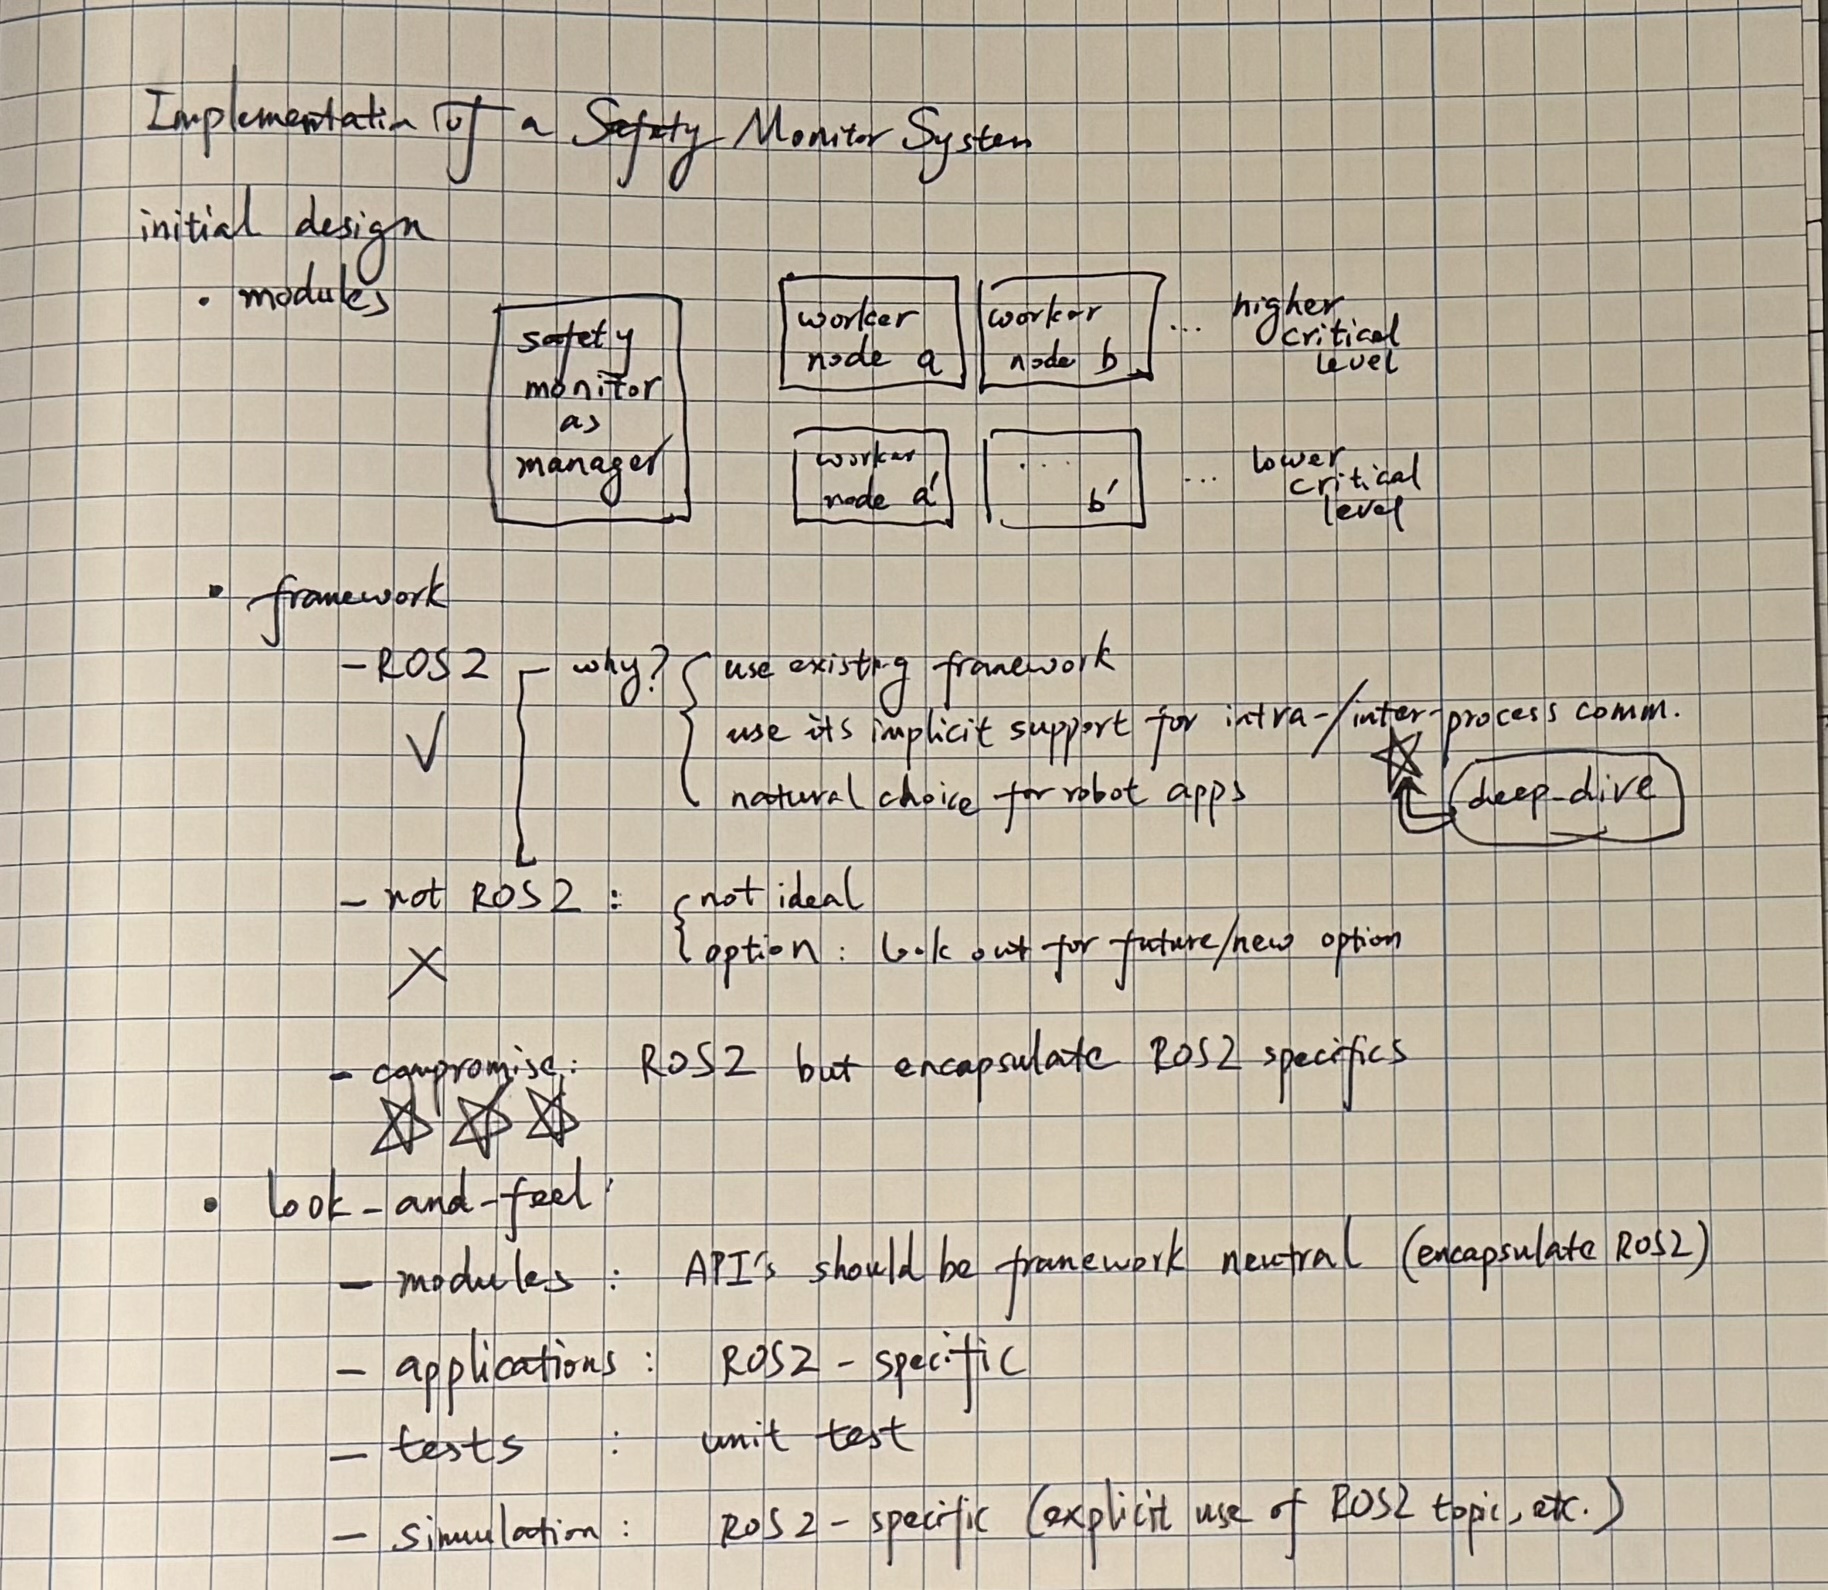 Implementatin of a Safety Monitor System
initial design
· modules
safety
monitor
as
manager
worker
node a
worker
node b
...
higher
critical
level
worker
node a'
....
b'
...
lower
critical
level
· framework
- ROS2 - why? { use existing framework
use its implicit support for intra-/inter-process comm.
natural choice for robot apps
deep-dive
- not ROS2 : { not ideal
option : look out for future/new option
- compromise: ROS2 but encapsulate ROS2 specifics
· look-and-feel
- modules : API's should be framework neutral (encapsulate ROS2)
- applications : ROS2 - specific
- tests : unit test
- simulation : ROS2 - specific (explicit use of ROS2 topic, etc.)